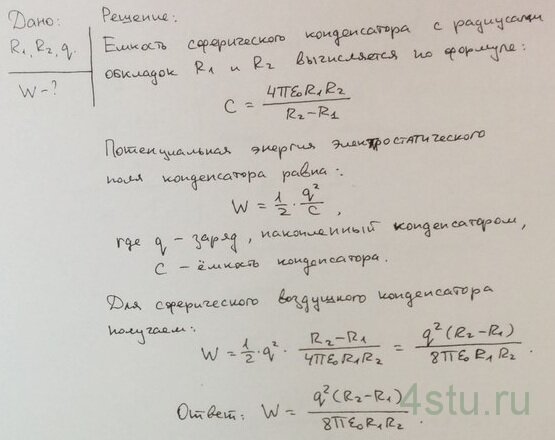 Дано:
R₁, R₂, q.
W-?
Решение:
Емкость сферического конденсатора с радиусами
обкладок R₁ и R₂ вычисляется по формуле:
C = 4πε₀R₁R₂ / R₂-R₁
Потенциальная энергия электростатического
поля конденсатора равна:
W = 1/2 · q²/C ,
где q - заряд, накопленный конденсатором,
C - ёмкость конденсатора.
Для сферического воздушного конденсатора
получаем:
W = 1/2 · q² · R₂-R₁ / 4πε₀R₁R₂ = q²(R₂-R₁) / 8πε₀R₁R₂ .
Ответ: W = q²(R₂-R₁) / 8πε₀R₁R₂ .
4stu.ru